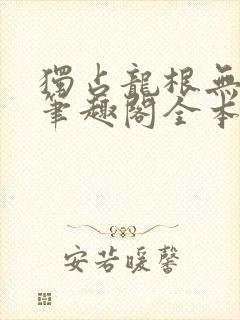 獨占龍根無
筆趣閣全本
安若暖馨